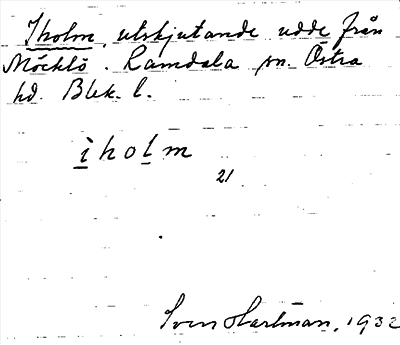 Iholm, utskjutande udde från
Möcklö. Ramdala sn. Östra
hd. Blek. l.
iholm
21
Sven Hartman, 1932